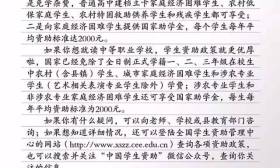 是免学杂费，普通高中建档立卡家庭经济困难学生、农村低
保家庭学生、农村特困救助供养学生和残疾学生都可享受；
二是家庭经济困难学生提供国家助学金，每个学生每年平均
资助标准达2000元。
如果你想就读中等职业学校，学生资助政策就更优厚
啦，国家已经免除了全日制正式学籍一、二、三年级在校生
中农村（含县镇）学生、城市家庭经济困难学生和涉农专业
学生（艺术类相关表演专业学生除外）学费；涉农专业学生
和非涉农专业家庭经济困难学生还可享受国家助学金，每生每
年平均资助标准为2000元。
如果你有什么疑问，可以向老师、学校或县教育部门咨
询；如果想知道详细情况，还可以登陆全国学生资助管理中
心的网站（http://www.xszz.cee.edu.cn）查询各项资助政策，
也可以搜索并关注“中国学生资助”微信公众号，查询你关